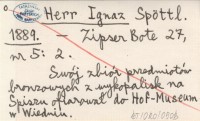 Herr Ignaz Spöttl.
1889. – Zipser Bote 27,
nr 5: 2.
Swój zbiór przedmiotów
bronzowych z wykopalisk na
Spiszu ofiarował do Hof-Museum
w Wiedniu.